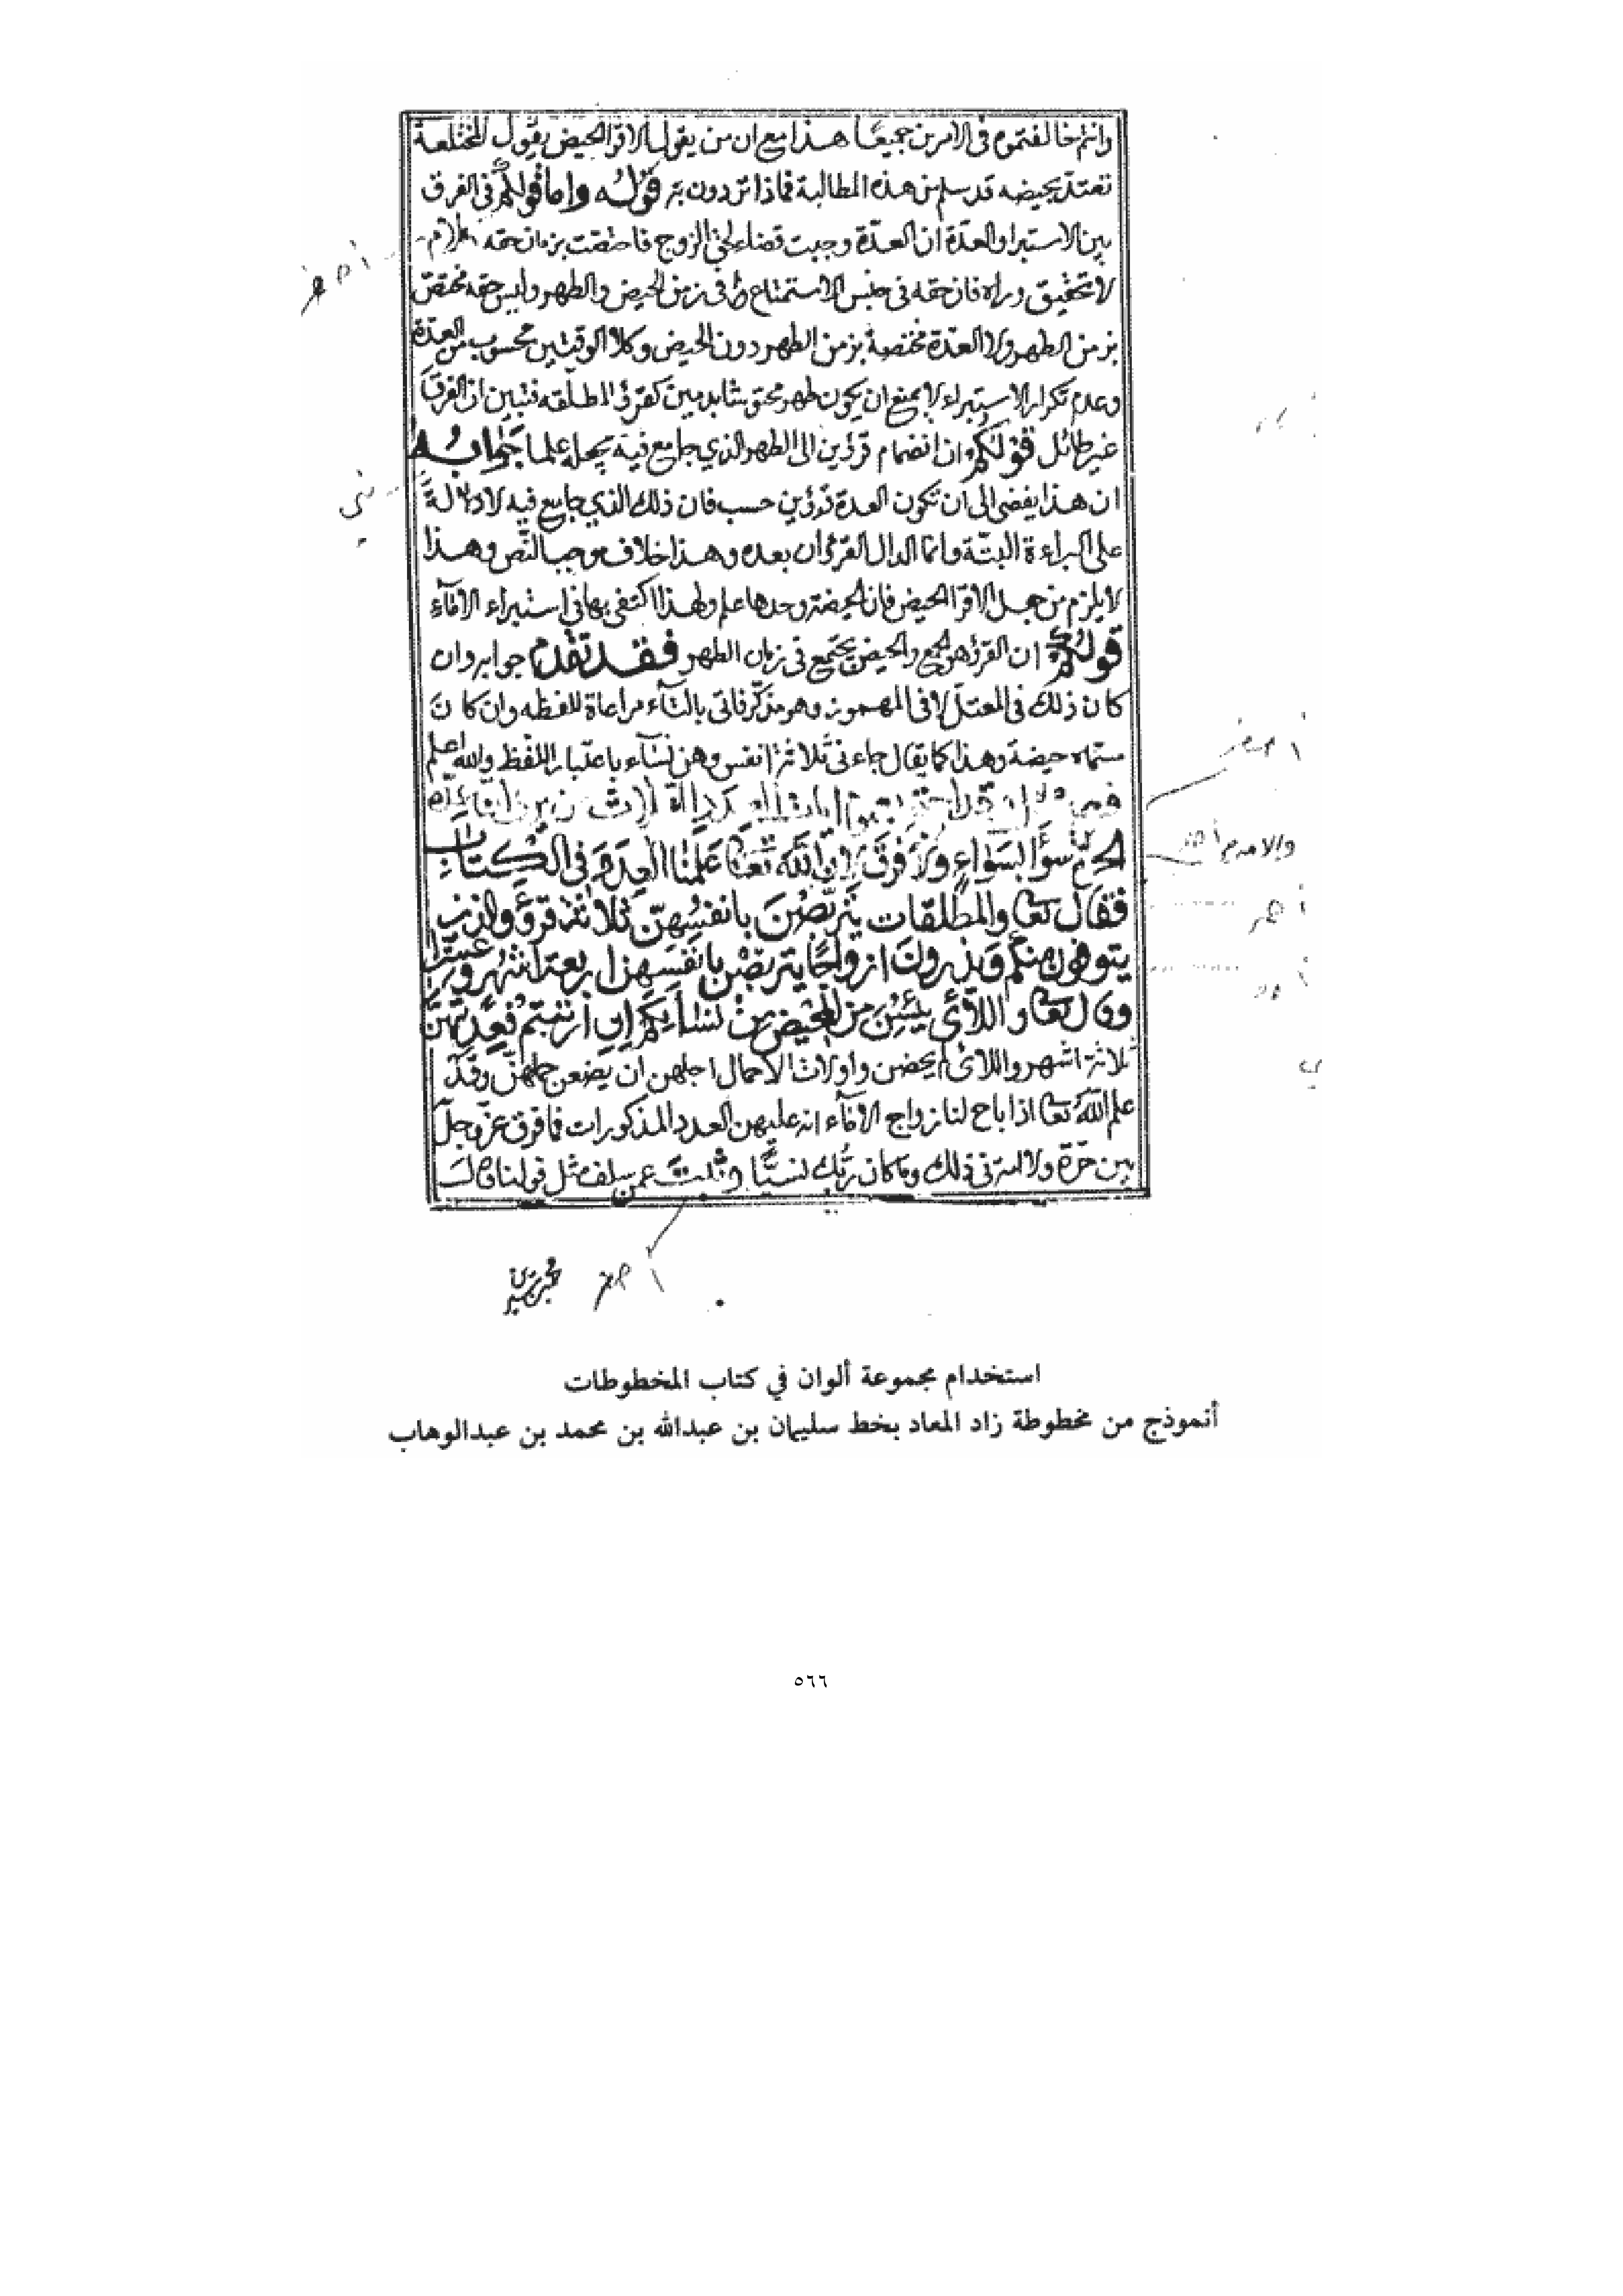 وانتم خالفتموه في الامرين جميعًا هذا مع ان من يقول الاقرا الحيض يقول المختلعة
تعتد بحيضه قد سلم من هذه المطالبة فماذا تردون به قوله واما قولكم في الفرق
بين الاستبرا والعدّة ان العدّة وجبت قضاء لحق الزوج فاختصت بزمان حقه كلام
لا تحقيق وراه فان حقه في جنس الاستمتاع في زمن الحيض والطهر وليس حقه مختصّ
بزمن الطهر ولا العدّة مختصة بزمن الطهر دون الحيض وكلا الوقتين محسوب من العدّة
وعدم تكرار الاستبراء لا يمنع ان يكون طهر محتوشا بدمين كقرؤ المطلقه فتبين ان الفرق
غير طائل قولكم وان انضمام قرؤين الى الطهر الذي جامع فيه يجعله علما جوابه
ان هذا يفضي الى ان تكون العدة قرؤين حسب فان ذلك الذي جامع فيه لا دلالةً
على البراءة البتّة وانما الدال القرؤان بعده وهذا خلاف موجب النّص وهذا
لا يلزم من جعل الاقرا الحيض فان الحيضة وحدها علم ولهذا اكتفى بها في استبراء الامآء
قولكم ان القرؤ هو الجمع والحيض يجتمع في زمان الطهر فقد تقدم جوابه وان
كان ذلك في المعتل لا في المهموز وهو مذكّر فاتى بالتآء مراعاة للفظه وان كان
مسماه حيضة وهذا كما يقال جاءني ثلاثة انفس وهن نسآء باعتبار اللفظ والله اعلم
سوأ بسواء ولا فرق ان الله تعا علمنا العدد في الكتاب
فقال تعا والمطلقات يتربصن بانفسهنّ ثلاثة قروء والذين
يتوفون منكم ويذرون ازواجا يتربصن بانفسهن اربعة اشهر وعشرا
وقال تعا واللآئي يئسن من المحيض من نسايكم ان ارتبتم فعدتهن
ثلاثة اشهر واللائي لم يحضن واولات الاحمال اجلهن ان يضعن حملهن وقد
علم الله تعا اذ اباح لنا زواج الامآء ان عليهن العدد المذكورات فما فرق عز وجل
بين حرّة ولا امة في ذلك وما كان ربّك نسيًّا وثبت عمن سلف مثل قولنا قال
محمد بن سيرين
استخدام مجموعة ألوان في كتاب المخطوطات
أنموذج من مخطوطة زاد المعاد بخط سليمان بن عبدالله بن محمد بن عبدالوهاب
٥٦٦